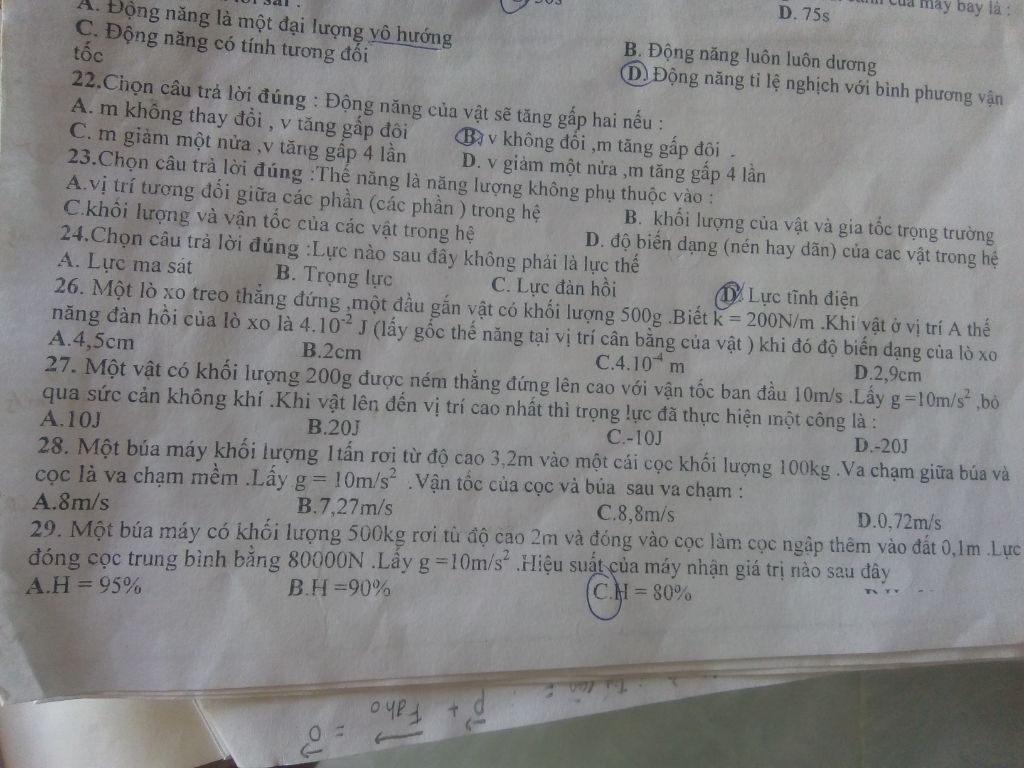 D. 75s
A. Động năng là một đại lượng vô hướng
C. Động năng có tính tương đối
B. Động năng luôn luôn dương
D. Động năng tỉ lệ nghịch với bình phương vận
tốc
22.Chọn câu trả lời đúng : Động năng của vật sẽ tăng gấp hai nếu :
A. m không thay đổi , v tăng gấp đôi
B. v không đổi ,m tăng gấp đôi .
C. m giảm một nửa ,v tăng gấp 4 lần
D. v giảm một nửa ,m tăng gấp 4 lần
23.Chọn câu trả lời đúng :Thế năng là năng lượng không phụ thuộc vào :
A.vị trí tương đối giữa các phần (các phần ) trong hệ
B. khối lượng của vật và gia tốc trọng trường
C.khối lượng và vận tốc của các vật trong hệ
D. độ biến dạng (nén hay dãn) của cac vật trong hệ
24.Chọn câu trả lời đúng :Lực nào sau đây không phải là lực thế
A. Lực ma sát B. Trọng lực C. Lực đàn hồi D. Lực tĩnh điện
26. Một lò xo treo thẳng đứng ,một đầu gắn vật có khối lượng 500g .Biết k = 200N/m .Khi vật ở vị trí A thế
năng đàn hồi của lò xo là 4.10⁻² J (lấy gốc thế năng tại vị trí cân bằng của vật ) khi đó độ biến dạng của lò xo
A.4,5cm B.2cm C.4.10⁻⁴ m D.2,9cm
27. Một vật có khối lượng 200g được ném thẳng đứng lên cao với vận tốc ban đầu 10m/s .Lấy g =10m/s² ,bỏ
qua sức cản không khí .Khi vật lên đến vị trí cao nhất thì trọng lực đã thực hiện một công là :
A.10J B.20J C.-10J D.-20J
28. Một búa máy khối lượng 1tấn rơi từ độ cao 3,2m vào một cái cọc khối lượng 100kg .Va chạm giữa búa và
cọc là va chạm mềm .Lấy g = 10m/s² .Vận tốc của cọc và búa sau va chạm :
A.8m/s B.7,27m/s C.8,8m/s D.0,72m/s
29. Một búa máy có khối lượng 500kg rơi từ độ cao 2m và đóng vào cọc làm cọc ngập thêm vào đất 0,1m .Lực
đóng cọc trung bình bằng 80000N .Lấy g =10m/s² .Hiệu suất của máy nhận giá trị nào sau đây
A.H = 95% B.H =90% C.H = 80%